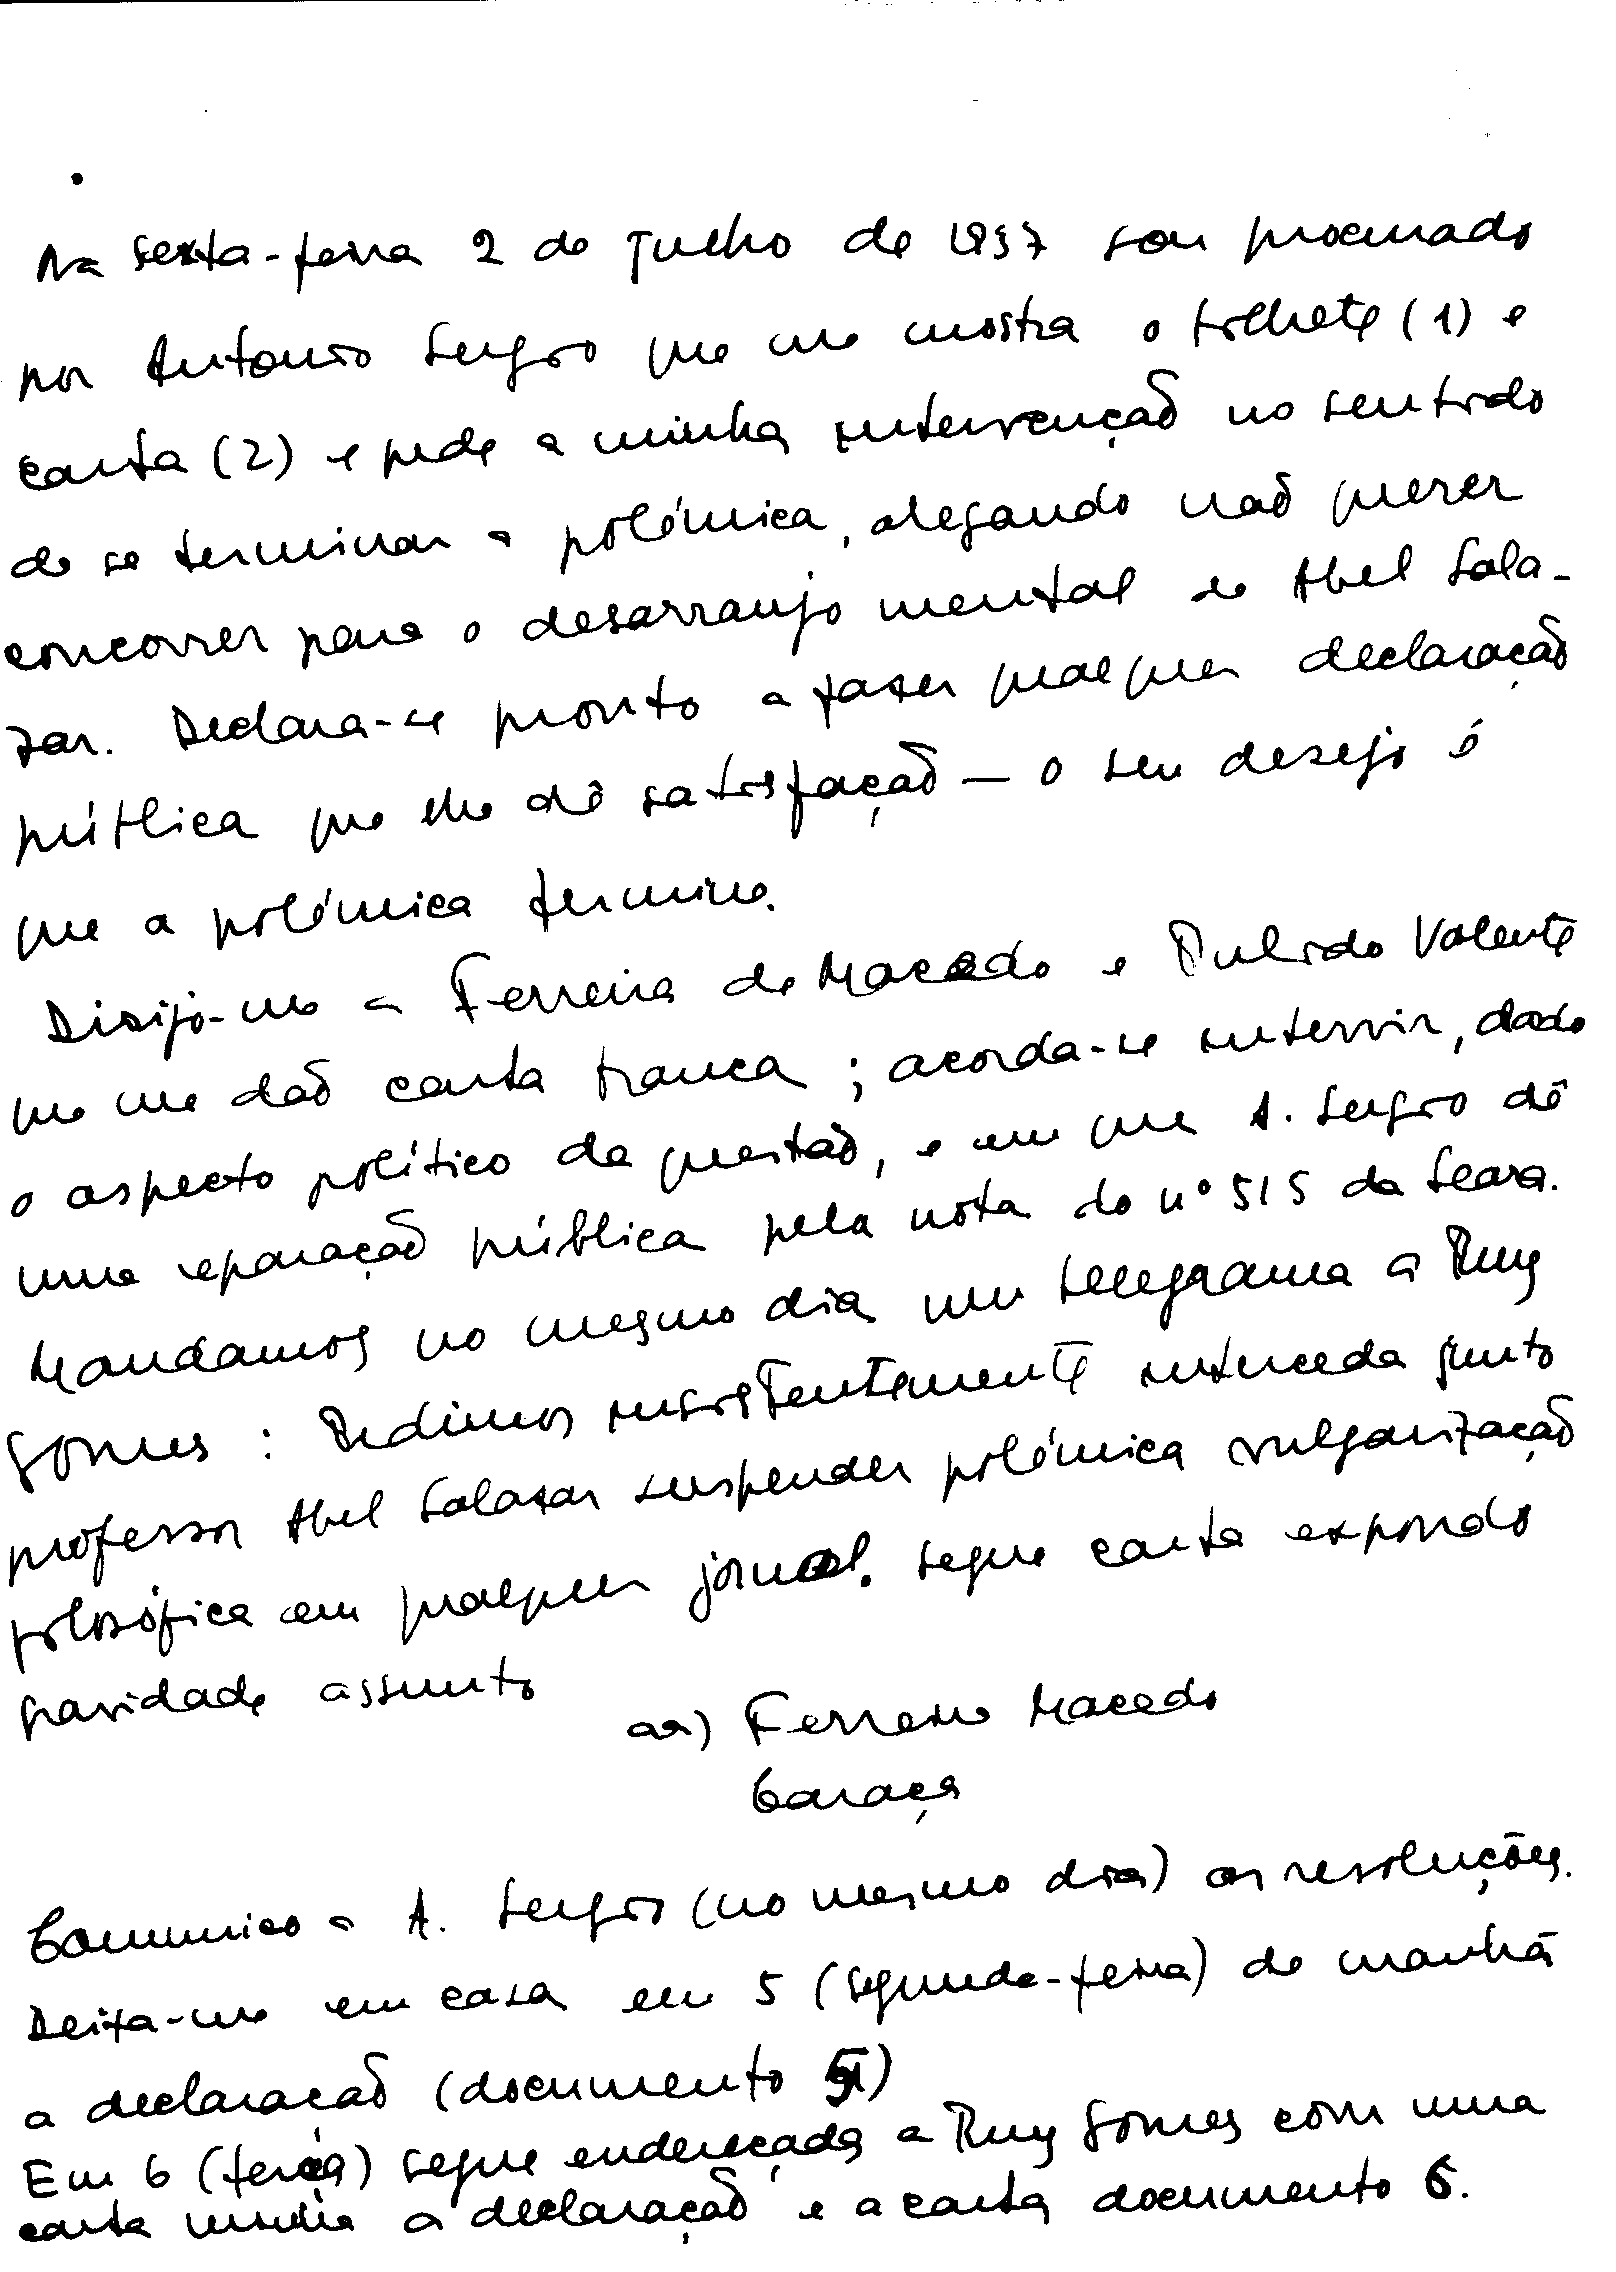 Na sexta-feira 2 de Julho de 1937 sou procurado
por António Sergio que me mostra o bilhete (1) e
carta (2) e pede a minha intervenção no sentido
de se terminar a polémica, alegando não querer
concorrer para o desarranjo mental de Abel Sala-
zar. Declara-se pronto a fazer qualquer declaração
pública que lhe dê satisfação — o seu desejo é
que a polémica termine.
Dirijo-me a Ferreira de Macedo e Pulido Valente
que me dão carta branca; acorda-se intervir, dado
o aspecto político da questão, e em que A. Sergio dê
uma reparação pública pela nota do nº 515 da Seara.
Mandamos no mesmo dia um telegrama a Ruy
Gomes: Pedimos insistentemente interceda junto
professor Abel Salazar suspender polémica vulgarização
filosófica em qualquer jornal. Segue carta expondo
gravidade assunto
aa) Ferreira Macedo
Caraça
Comunico a A. Sergio (no mesmo dia) as resoluções.
Deixa-me em casa em 5 (segunda-feira) de manhã
a declaração (documento 5)
Em 6 (terça) segue endereçada a Ruy Gomes com uma
carta minha a declaração e a carta documento 6.